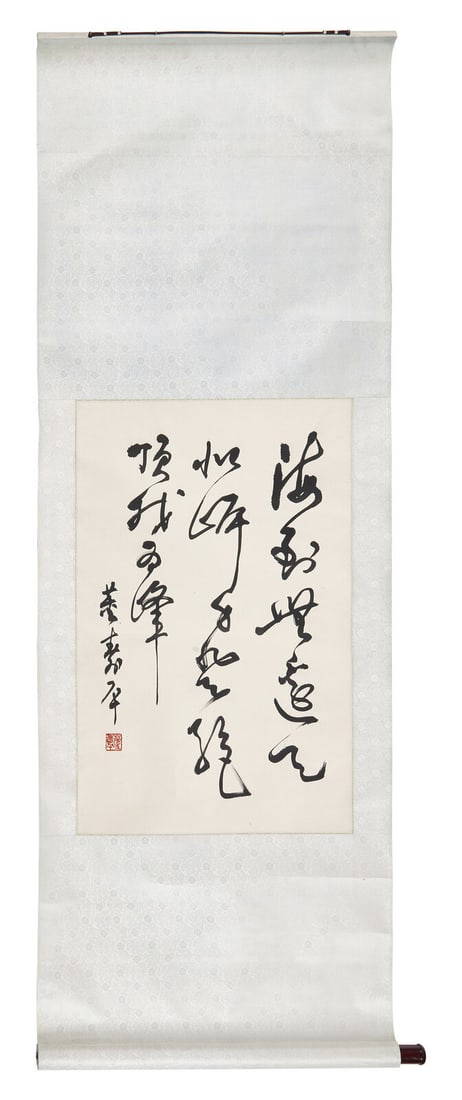 海到無邊天
作岸山登絕
頂我為峰
董壽平